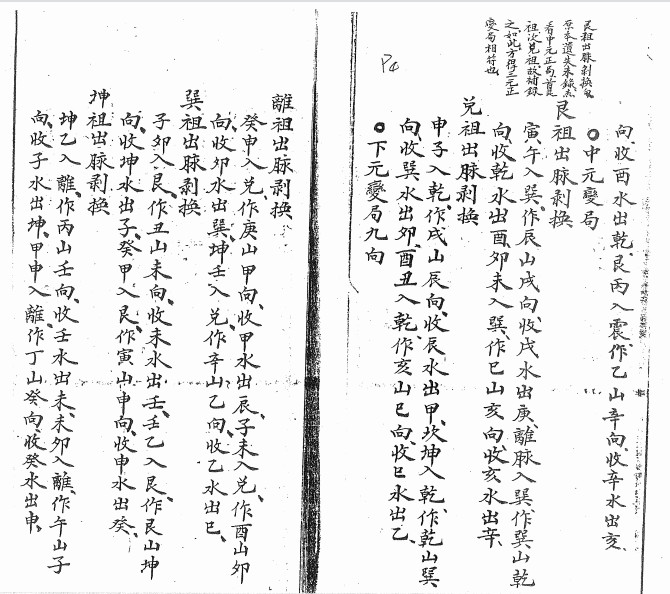 向、收酉水出乾、艮丙入震、作乙山辛向、收辛水出亥、
○中元變局
艮祖出脉剥換
艮祖出脉剥換
原本遺失未錄
看中元正局首艮
祖次兌祖故補錄
之如此方得三元正
變局相符也
寅午入巽、作辰山戌向、收戌水出庚、離脉入巽、作巽山乾
向、收乾水出酉、卯未入巽、作巳山亥向、收亥水出辛、
兌祖出脉剥換
申子入乾、作戌山辰向、收辰水出甲、坎坤入乾、作乾山巽
向、收巽水出卯、酉丑入乾、作亥山巳向、收巳水出乙、
○下元變局九向
P4
離祖出脉剥換
癸申入兌、作庚山甲向、收甲水出辰、子未入兌、作酉山卯
向、收卯水出巽、坤壬入兌、作辛山乙向、收乙水出巳、
巽祖出脉剥換
子卯入艮、作丑山未向、收未水出壬、壬乙入艮、作艮山坤
向、收坤水出子、癸甲入艮、作寅山申向、收申水出癸、
坤祖出脉剥換
坤乙入離、作丙山壬向、收壬水出未、未卯入離、作午山子
向、收子水出坤、甲申入離、作丁山癸向、收癸水出申、